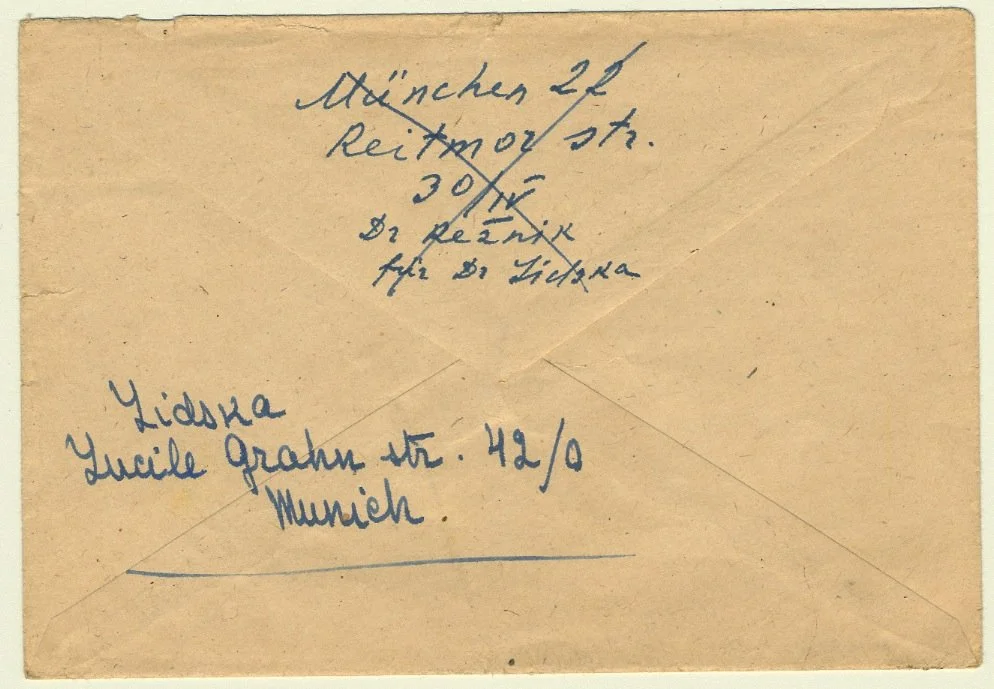 München 22
Reitmor str.
30/IV
Dr Režnik
für Dr Lidska
Lidska
Lucile Grahn str. 42/0
Munich